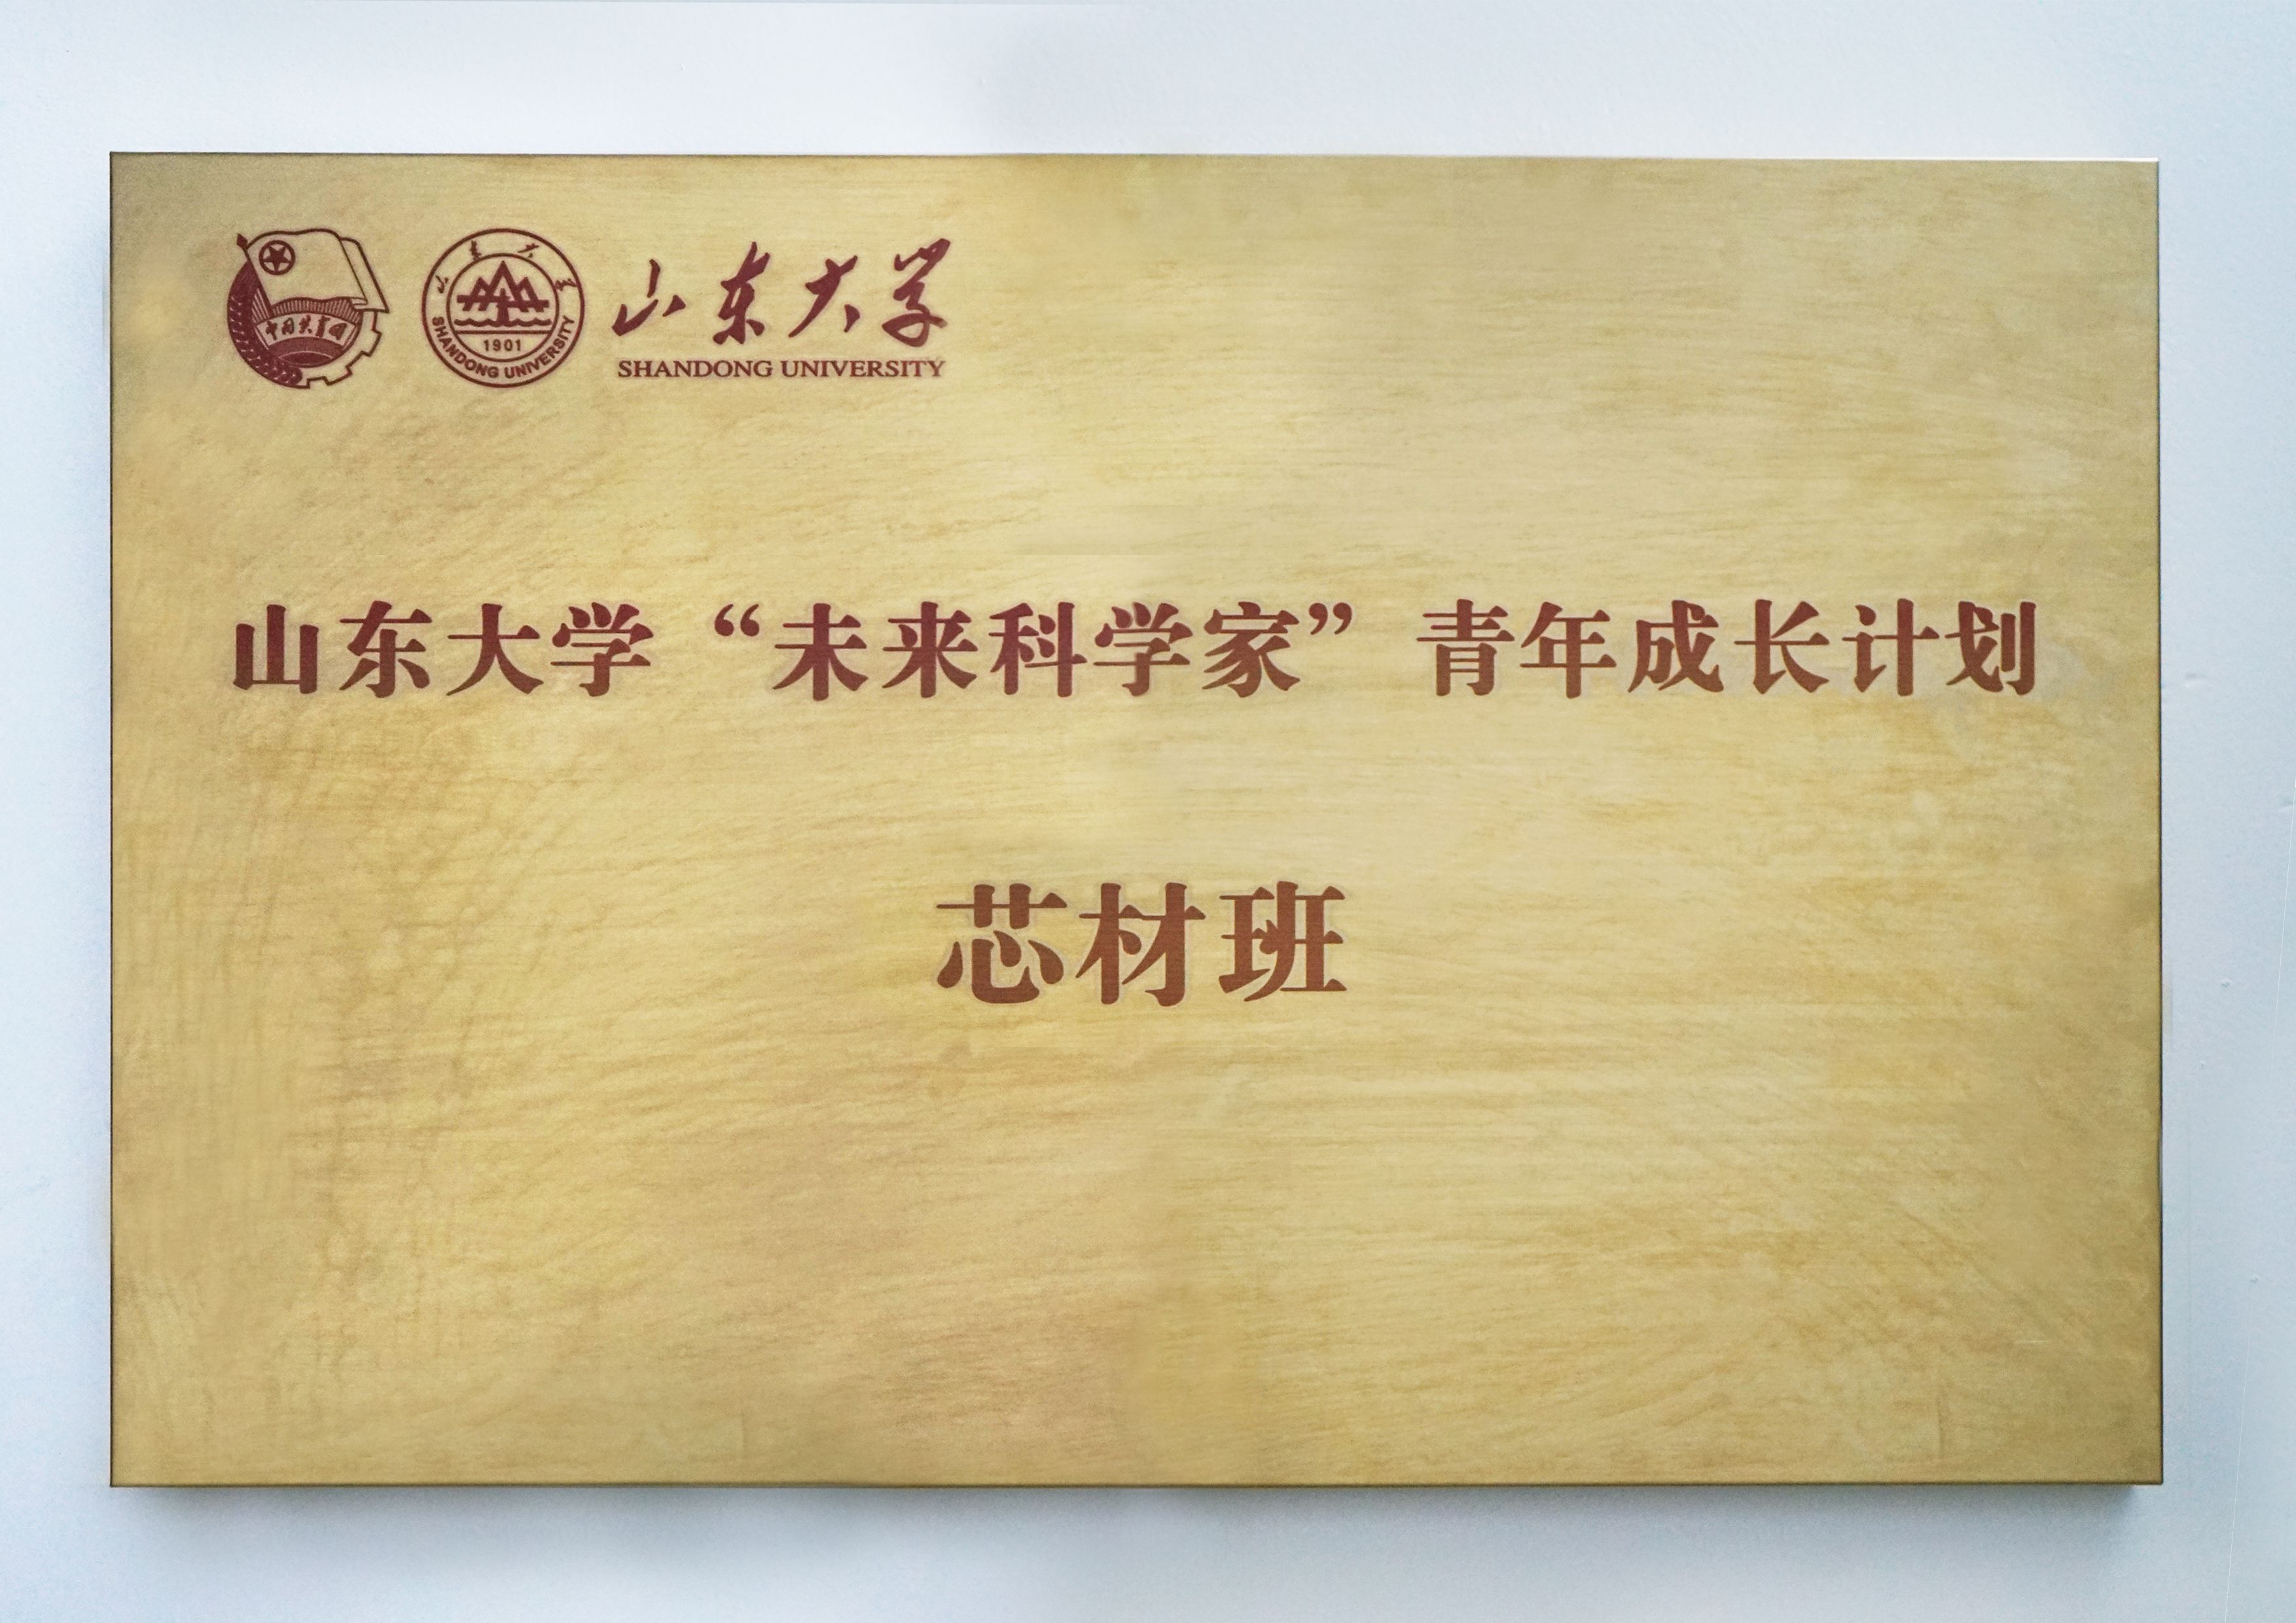 中国共青团
山东大学
1901
SHANDONG UNIVERSITY
山东大学
SHANDONG UNIVERSITY
山东大学“未来科学家”青年成长计划
芯材班